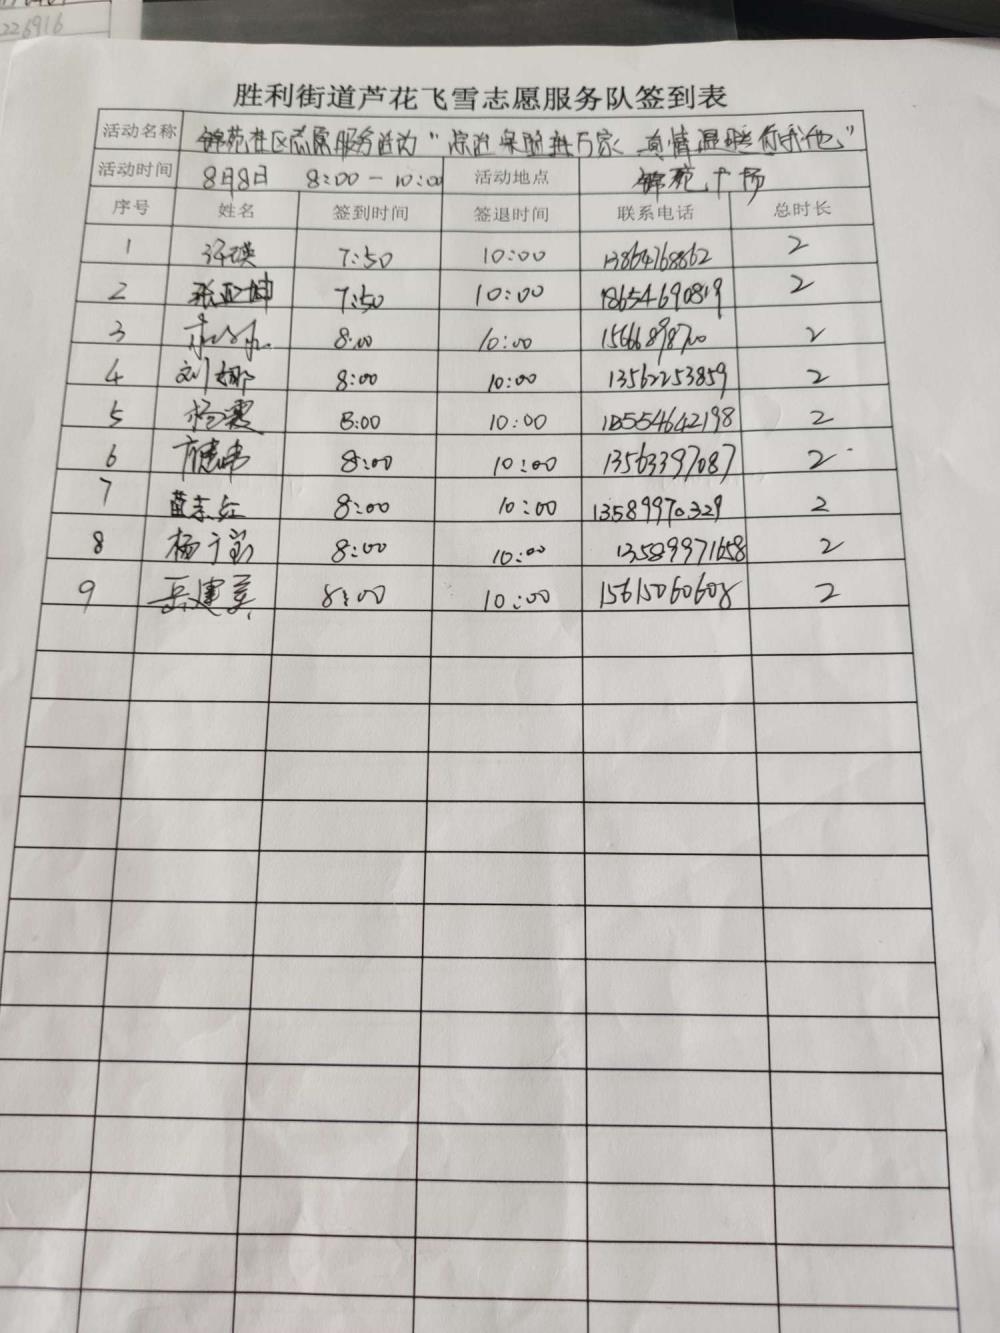 226916
胜利街道芦花飞雪志愿服务队签到表
活动名称 锦苑社区志愿服务活动" 万家 真情温暖你我他"
活动时间 8月8日 8:00-10:00 活动地点 锦苑广场
序号 姓名 签到时间 签退时间 联系电话 总时长
1 7:50 10:00 13864768862 2
2 张亚坤 7:50 10:00 18654690819 2
3 8:00 10:00 2
4 刘娜 8:00 10:00 13562253859 2
5 杨霞 8:00 10:00 2
6 8:00 10:00 13563397087 2
7 苗志红 8:00 10:00 13589970329 2
8 杨宁 8:00 10:00 13589971658 2
9 岳建美 8:00 10:00 15615060608 2